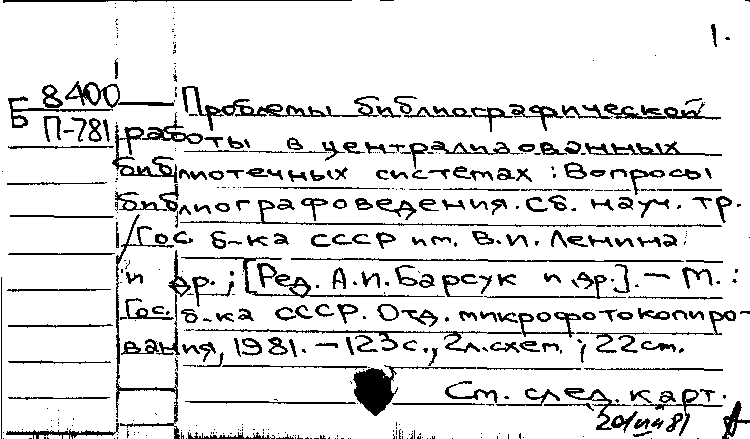 1.
Б 8400 Проблемы библиографической
П-781 работы в централизованных
библиотечных системах: Вопросы
библиографоведения. Сб. науч. тр.
/ Гос. б-ка СССР им. В.И. Ленина
и др.; [Ред. А.И. Барсук и др.]. — М.:
Гос. б-ка СССР. Отд. микрофотокопиро-
вания, 1981. — 123 с., 2 л. схем; 22 см.
См. след. карт.